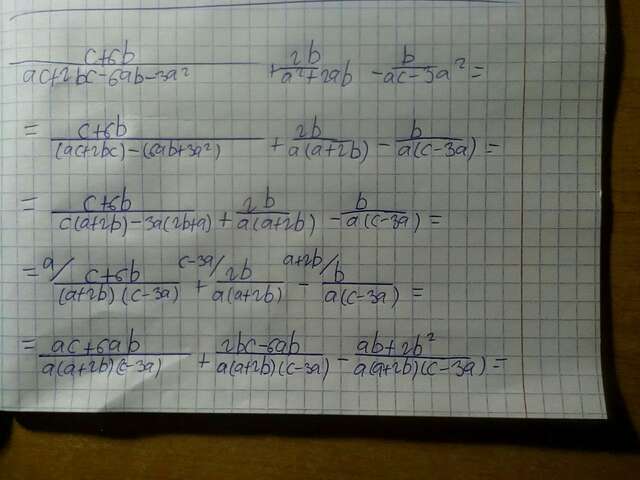 (c+6b)/(ac+2bc-6ab-3a²) + 2b/(a²+2ab) - b/(ac-3a²) =
= (c+6b)/((ac+2bc)-(6ab+3a²)) + 2b/(a(a+2b)) - b/(a(c-3a)) =
= (c+6b)/(c(a+2b)-3a(2b+a)) + 2b/(a(a+2b)) - b/(a(c-3a)) =
= a/ (c+6b)/((a+2b)(c-3a)) + c-3a/ 2b/(a(a+2b)) - a+2b/ b/(a(c-3a)) =
= (ac+6ab)/(a(a+2b)(c-3a)) + (2bc-6ab)/(a(a+2b)(c-3a)) - (ab+2b²)/(a(a+2b)(c-3a)) =